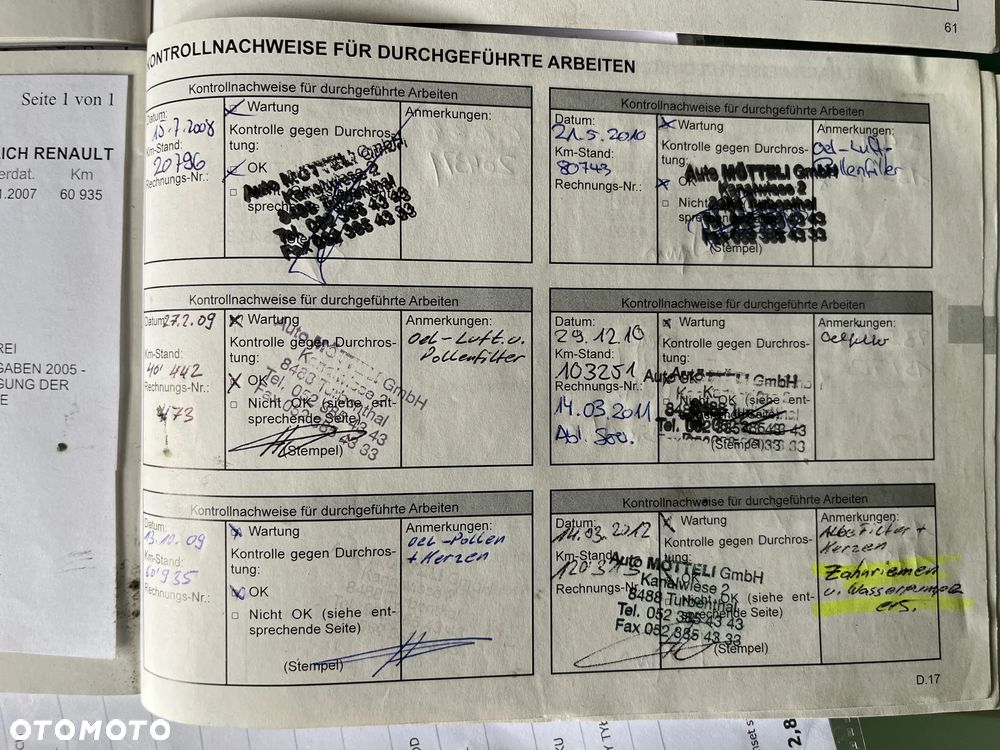 61
Seite 1 von 1
ICH RENAULT
erdat. Km
.2007 60 935
REI
GABEN 2005 -
GUNG DER
E
KONTROLLNACHWEISE FÜR DURCHGEFÜHRTE ARBEITEN
Kontrollnachweise für durchgeführte Arbeiten
Datum:
15.7.2008
Km-Stand:
20796
Rechnungs-Nr.:
Wartung
Kontrolle gegen Durchros-
tung:
OK
sprechende
Auto MÖTTELI GmbH
Kanalwiese 2
Tel. 052 385 43 43
Fax 052 385 43 33
Anmerkungen:
Kontrollnachweise für durchgeführte Arbeiten
Datum:
27.2.09
Km-Stand:
40'442
Rechnungs-Nr.:
473
Wartung
Kontrolle gegen Durchros-
tung:
OK
Nicht OK (siehe ent-
sprechende Seite)
Auto MÖTTELI GmbH
8488 Turbenthal
Tel. 052 385 43 43
Fax 052 385 43 33
(Stempel)
Anmerkungen:
Oel-Luft u.
Pollenfilter
Kontrollnachweise für durchgeführte Arbeiten
Datum:
13.10.09
Km-Stand:
60'935
Rechnungs-Nr.:
Wartung
Kontrolle gegen Durchros-
tung:
OK
Nicht OK (siehe ent-
sprechende Seite)
(Stempel)
Anmerkungen:
Oel-Pollen
+ Kerzen
Kontrollnachweise für durchgeführte Arbeiten
Datum:
21.5.2010
Km-Stand:
80743
Rechnungs-Nr.:
Wartung
Kontrolle gegen Durchros-
tung:
OK
Nicht
Auto MÖTTELI GmbH
Kanalwiese 2
Fax 052 385 43 33
(Stempel)
Anmerkungen:
Oel-Luft-
Pollenfilter
Kontrollnachweise für durchgeführte Arbeiten
Datum:
29.12.10
Km-Stand:
103251
Rechnungs-Nr.:
14.03.2011
Wartung
Kontrolle gegen Durchros-
tung:
OK
Nicht OK (siehe ent-
Auto MÖTTELI GmbH
Tel. 052 385 43 43
(Stempel)
Anmerkungen:
Oelfilter
Kontrollnachweise für durchgeführte Arbeiten
Datum:
14.03.2012
Km-Stand:
Rechnungs-Nr.:
Wartung
Kontrolle gegen Durchros-
tung:
OK
Nicht OK (siehe ent-
sprechende Seite)
Auto MÖTTELI GmbH
Kanalwiese 2
8488 Turbenthal
Tel. 052 385 43 43
Fax 052 385 43 33
(Stempel)
Anmerkungen:
Kerzen
Zahnriemen
u. Wasserpumpe
ers.
D.17
OTOMOTO
2,8